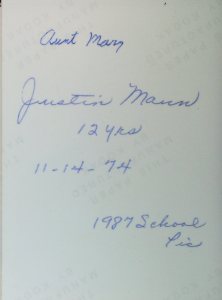 Aunt Mary
Justin Mann
12 yrs
11-14-74
1987 School
Pic